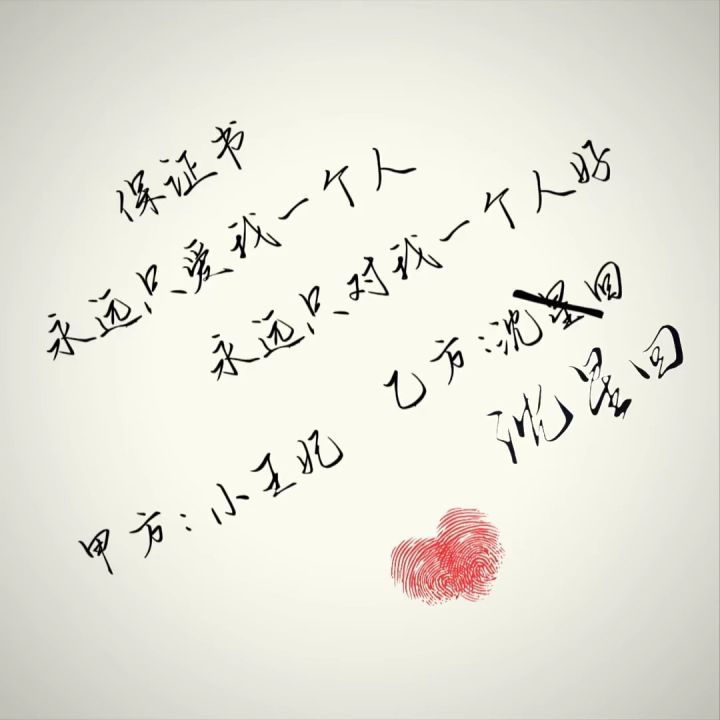 保证书
永远只爱我一个人
永远只对我一个人好
乙方:沈星回
沈星回
甲方:小王妃